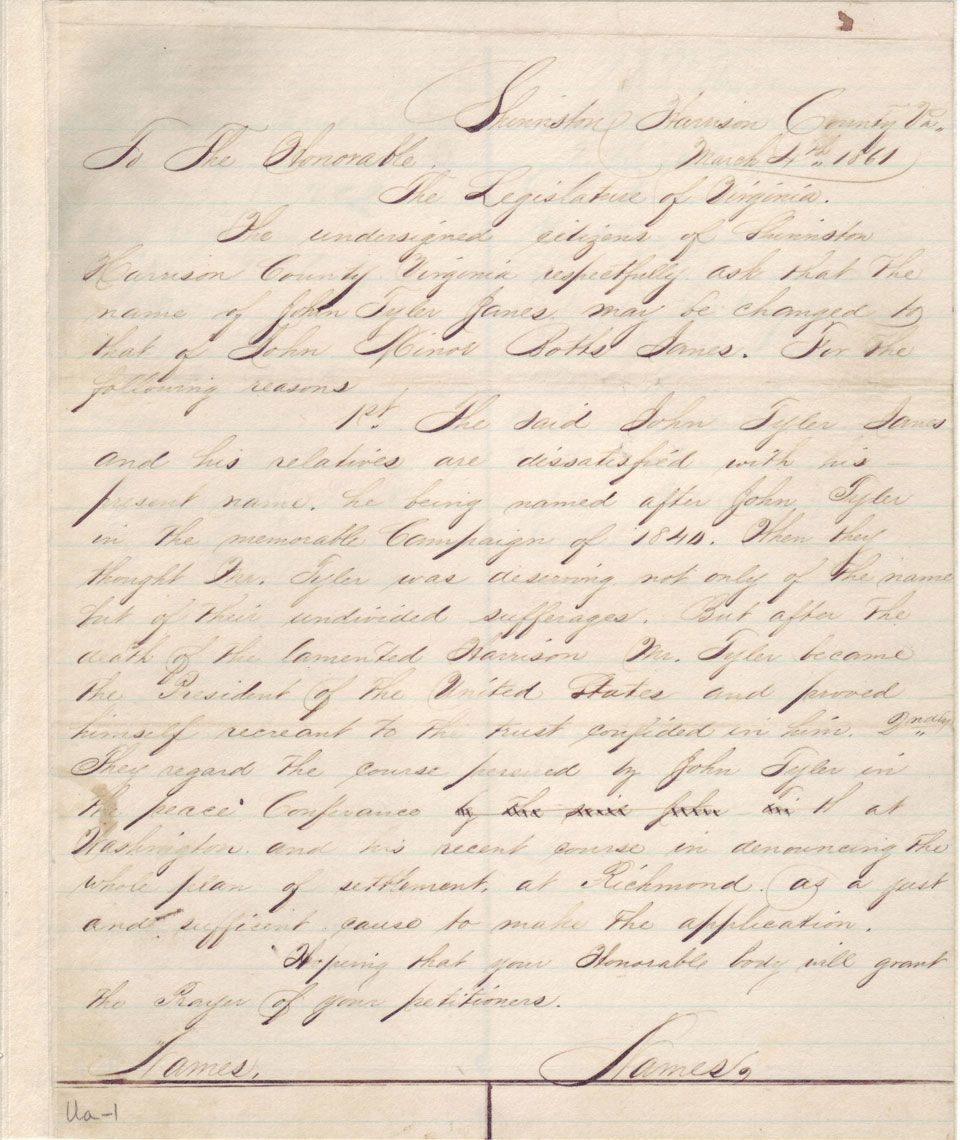 Shinnston Harrison County Va.
To The Honorable. March 4th 1861
The Legislature of Virginia.
The undersigned citizens of Shinnston
Harrison County Virginia respectfully ask that the
name of John Tyler Janes may be changed to
that of John Minor Botts Janes. For the
following reasons
1st. The said John Tyler Janes
and his relatives are dissatisfied with his
present name. he being named after John Tyler
in the memorable Campaign of 1840. When they
thought Mr. Tyler was deserving not only of the name
but of their undivided sufferages. But after the
death of the lamented Harrison Mr. Tyler became
the President of the United States and proved
himself recreant to the trust confided in him. 2ndly
They regard the course persued by John Tyler in
the peace Conferance by the th at
Washington and his recent course in denouncing the
whole plan of settlement. at Richmond. as a just
and sufficient cause to make the application.
Hopeing that your Honorable body will grant
the Prayer of your petitioners.
Names. Names,
Ua-1